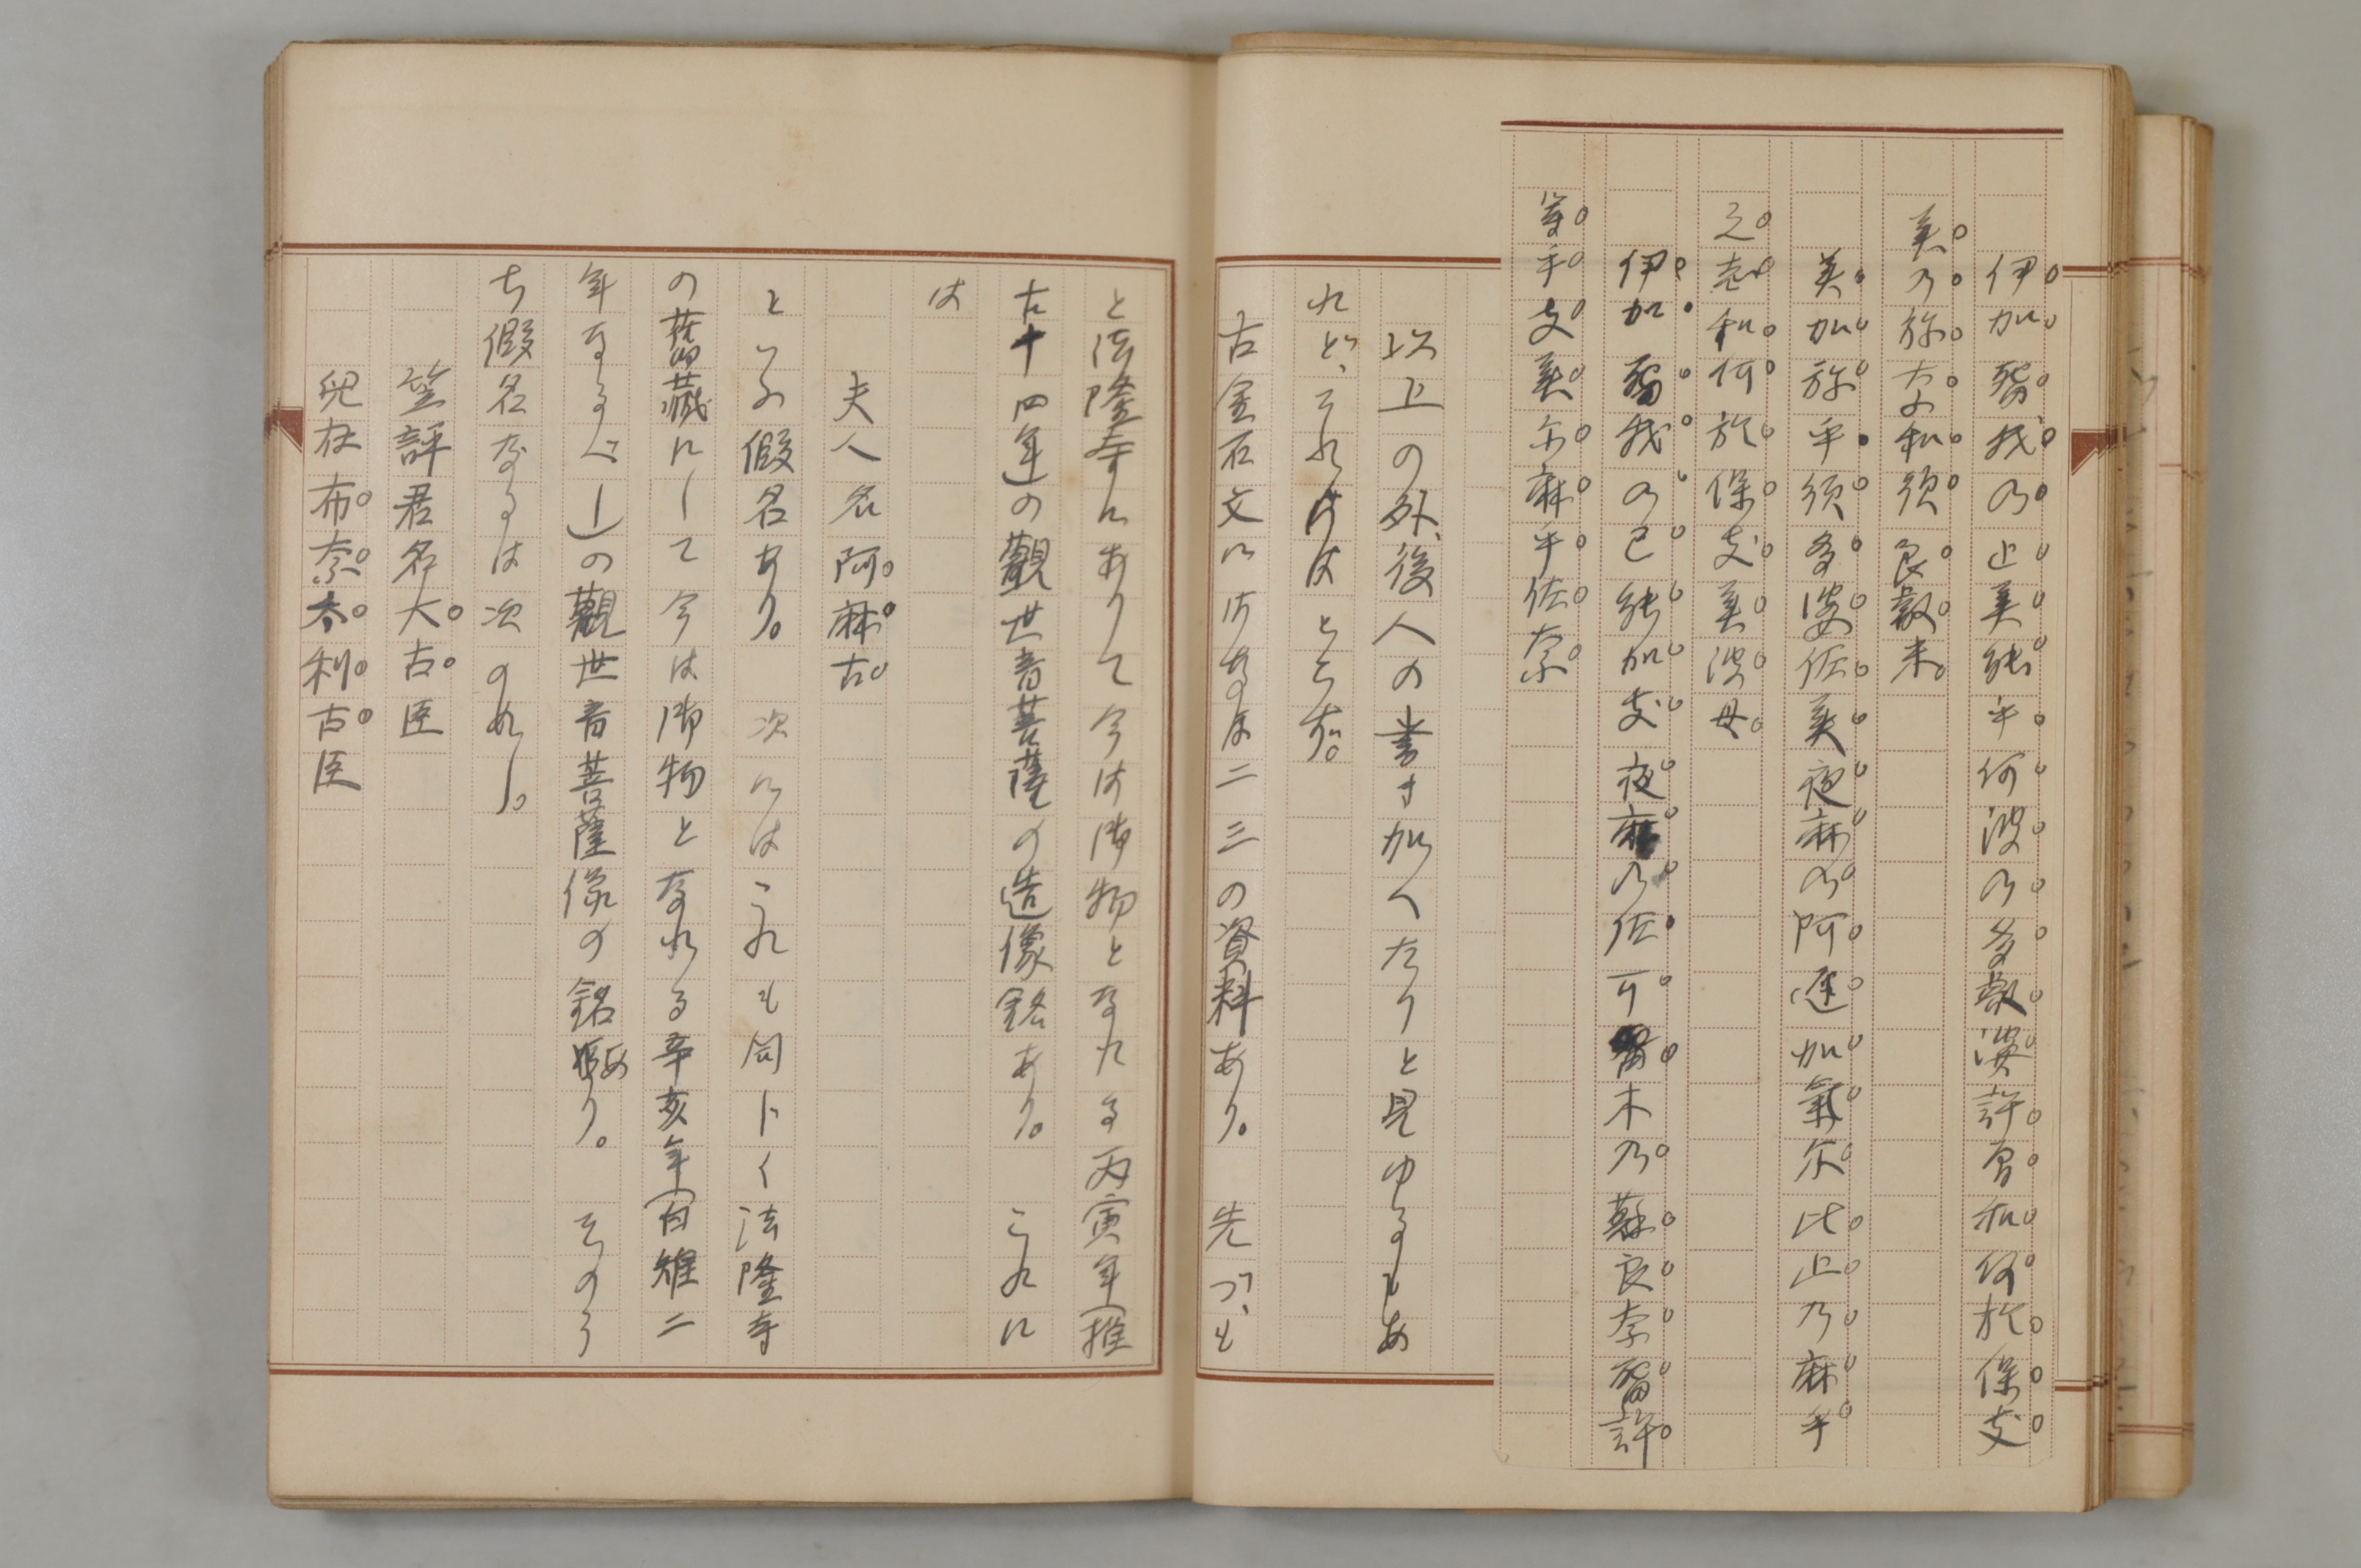 伊加留我乃止美能乎何波乃多叡波許曾和何於保支
美乃弥奈和須良叡米
美加弥乎須多婆佐美夜麻乃阿遅加氣尓比止乃麻乎
之志和何於保支美波母
伊加留我乃己能加支夜麻乃佐可留木乃蘇良奈留許
等乎支美尓麻乎佐奈
以上の外、後人の書き加へたりと見ゆるもあ
れど、それ等はとらず。
古金石文にはなほ二三の資料あり。先づ、も
と法隆寺にありて今は御物となれる丙寅年(推
古十四年)の觀世音菩薩の造像銘あり。これに
は
夫人名阿麻古
といふ假名あり。次にはこれも同じく法隆寺
の舊藏にして今は御物となれる辛亥年(白雉二
年なるべし)の觀世音菩薩像の銘あり。そのう
ち假名なるは次の如し。
笠評君名大古臣
兒在布奈太利古臣